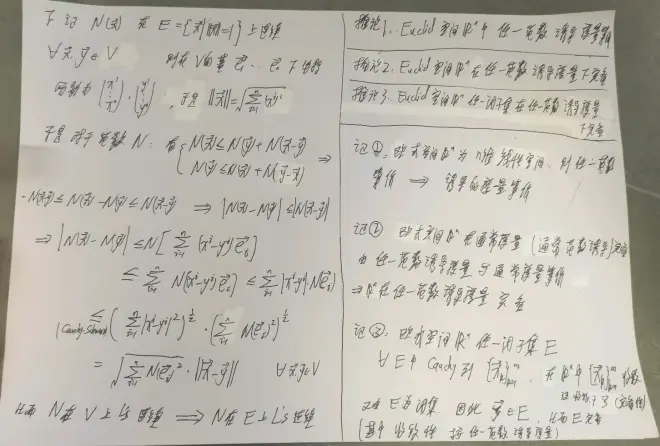 下证 N(x⃗) 在 E={x⃗| ‖x⃗‖=1} 上连续
∀ x⃗, y⃗ ∈ V 则在 V 的基 e⃗₁ … e⃗ₙ 下坐标
分别为 (x¹ ⋮ xⁿ), (y¹ ⋮ yⁿ), 于是 ‖x⃗‖=√(∑ᵢ₌₁ⁿ (xⁱ)²)
于是 对于范数 N: 有 { N(x⃗) ≤ N(y⃗) + N(x⃗-y⃗)
N(y⃗) ≤ N(x⃗) + N(y⃗-x⃗) ⇒
-N(x⃗-y⃗) ≤ N(x⃗) - N(y⃗) ≤ N(x⃗-y⃗) ⇒ |N(x⃗)-N(y⃗)| ≤ N(x⃗-y⃗)
⇒ |N(x⃗)-N(y⃗)| ≤ N[∑ᵢ₌₁ⁿ (xⁱ-yⁱ)e⃗ᵢ]
≤ ∑ᵢ₌₁ⁿ N((xⁱ-yⁱ)e⃗ᵢ) ≤ ∑ᵢ₌₁ⁿ |xⁱ-yⁱ|·N(e⃗ᵢ)
≤ (Cauchy-Schwarz) (∑ᵢ₌₁ⁿ |xⁱ-yⁱ|²)^½ · (∑ᵢ₌₁ⁿ N(e⃗ᵢ)²)^½
= √(∑ᵢ₌₁ⁿ N(e⃗ᵢ)²) · ‖x⃗-y⃗‖ ∀ x⃗, y⃗ ∈ V
从而 N 在 V 上 L's 连续 ⇒ N 在 E 上 L's 连续
推论1. Euclid 空间 Rⁿ 中 任一范数 诱导 度量等价
推论2. Euclid 空间 Rⁿ 在任一范数 诱导度量下完备
推论3. Euclid 空间 Rⁿ 任一闭子集在任一范数诱导度量
下完备
证①: 欧式空间 Rⁿ 为 n维 线性空间, 则 任一范数
等价 ⇒ 诱导的度量等价
证② 欧式空间 Rⁿ 在通常度量 (通常范数诱导) 完备
由 任一范数诱导度量 与 通常度量等价
⇒ Rⁿ 在任一范数诱导度量 完备
证③: 欧式空间 Rⁿ 任一闭子集 E
∀ E 中 Cauchy 列 {x⃗ₖ}ₖ₌₁^∞, 在 Rⁿ 中 {x⃗ₖ}ₖ₌₁^∞ 收敛
(完备性)
又由 E 为闭集 因此 ξ⃗ ∈ E, 从而 E 完备
(其中 收敛性 按任一范数诱导度量)